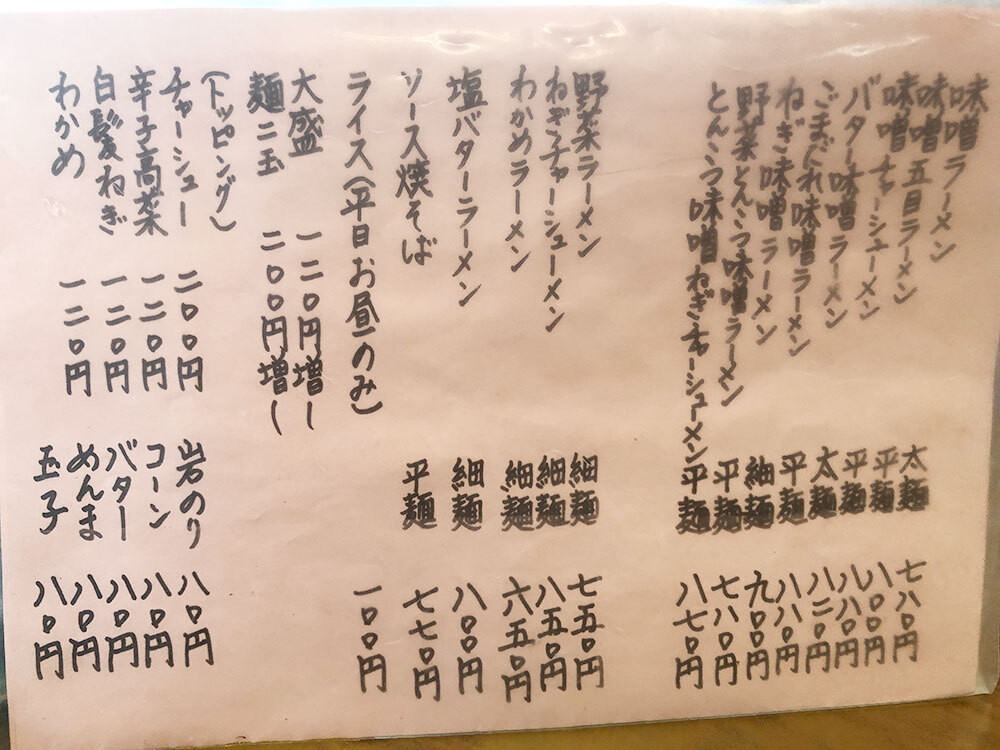 味噌ラーメン 太麺 七八〇円
味噌五目ラーメン 平麺 八〇〇円
味噌チャーシューメン 平麺 八八〇円
バター味噌ラーメン 太麺 八二〇円
ごまだれ味噌ラーメン 平麺 八八〇円
ねぎ味噌ラーメン 細麺 九〇〇円
野菜とんこつ味噌ラーメン 平麺 七八〇円
とんこつ味噌ねぎチャーシューメン 平麺 八七〇円
野菜ラーメン 細麺 七五〇円
ねぎチャーシューメン 細麺 八五〇円
わかめラーメン 細麺 六五〇円
塩バターラーメン 細麺 八〇〇円
ソース焼そば 平麺 七七〇円
ライス(平日お昼のみ) 一〇〇円
大盛 一二〇円増し
麺二玉 二〇〇円増し
(トッピング)
チャーシュー 二〇〇円
辛子高菜 一二〇円
白髪ねぎ 一二〇円
わかめ 一二〇円
岩のり 八〇円
コーン 八〇円
バター 八〇円
めんま 八〇円
玉子 八〇円